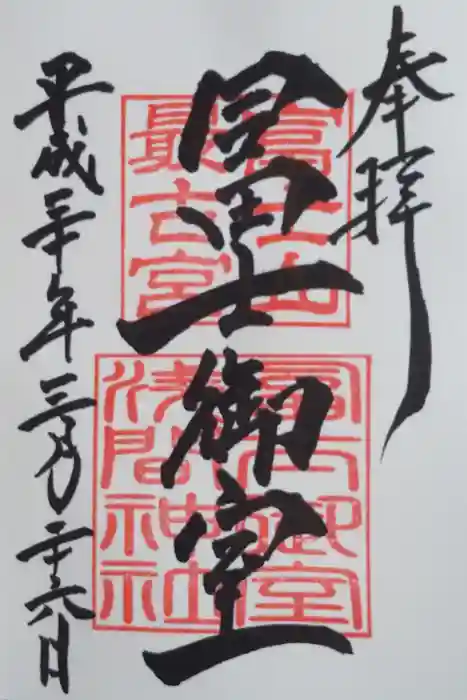 奉拝
冨士御室
富士山
最古宮
冨士御室
浅間神社
平成三十年三月二十六日